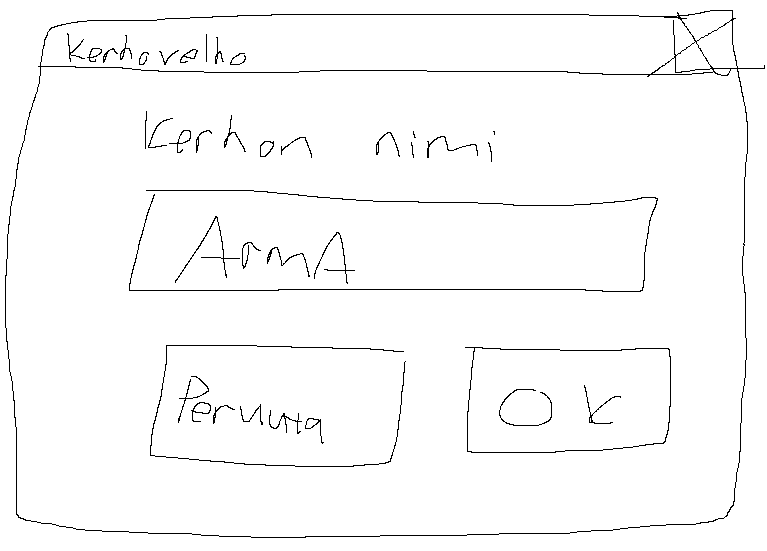 Kerhovelho
Kerhon nimi
ArmA
Peruuta
OK